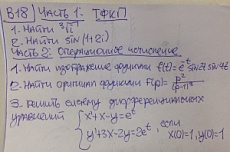 В18 Часть 1. ТФКП
1. Найти
2. Найти sin(1+2i)
Часть 2: Операционное исчисление
1. Найти изображение функции f(t)=e^t sin7t sin4t
2. Найти оригинал функции F(p)=
3. Решить систему дифференциальных
уравнений { x'+x-y=e^t
y'+3x-2y=2e^t, если
x(0)=1, y(0)=1